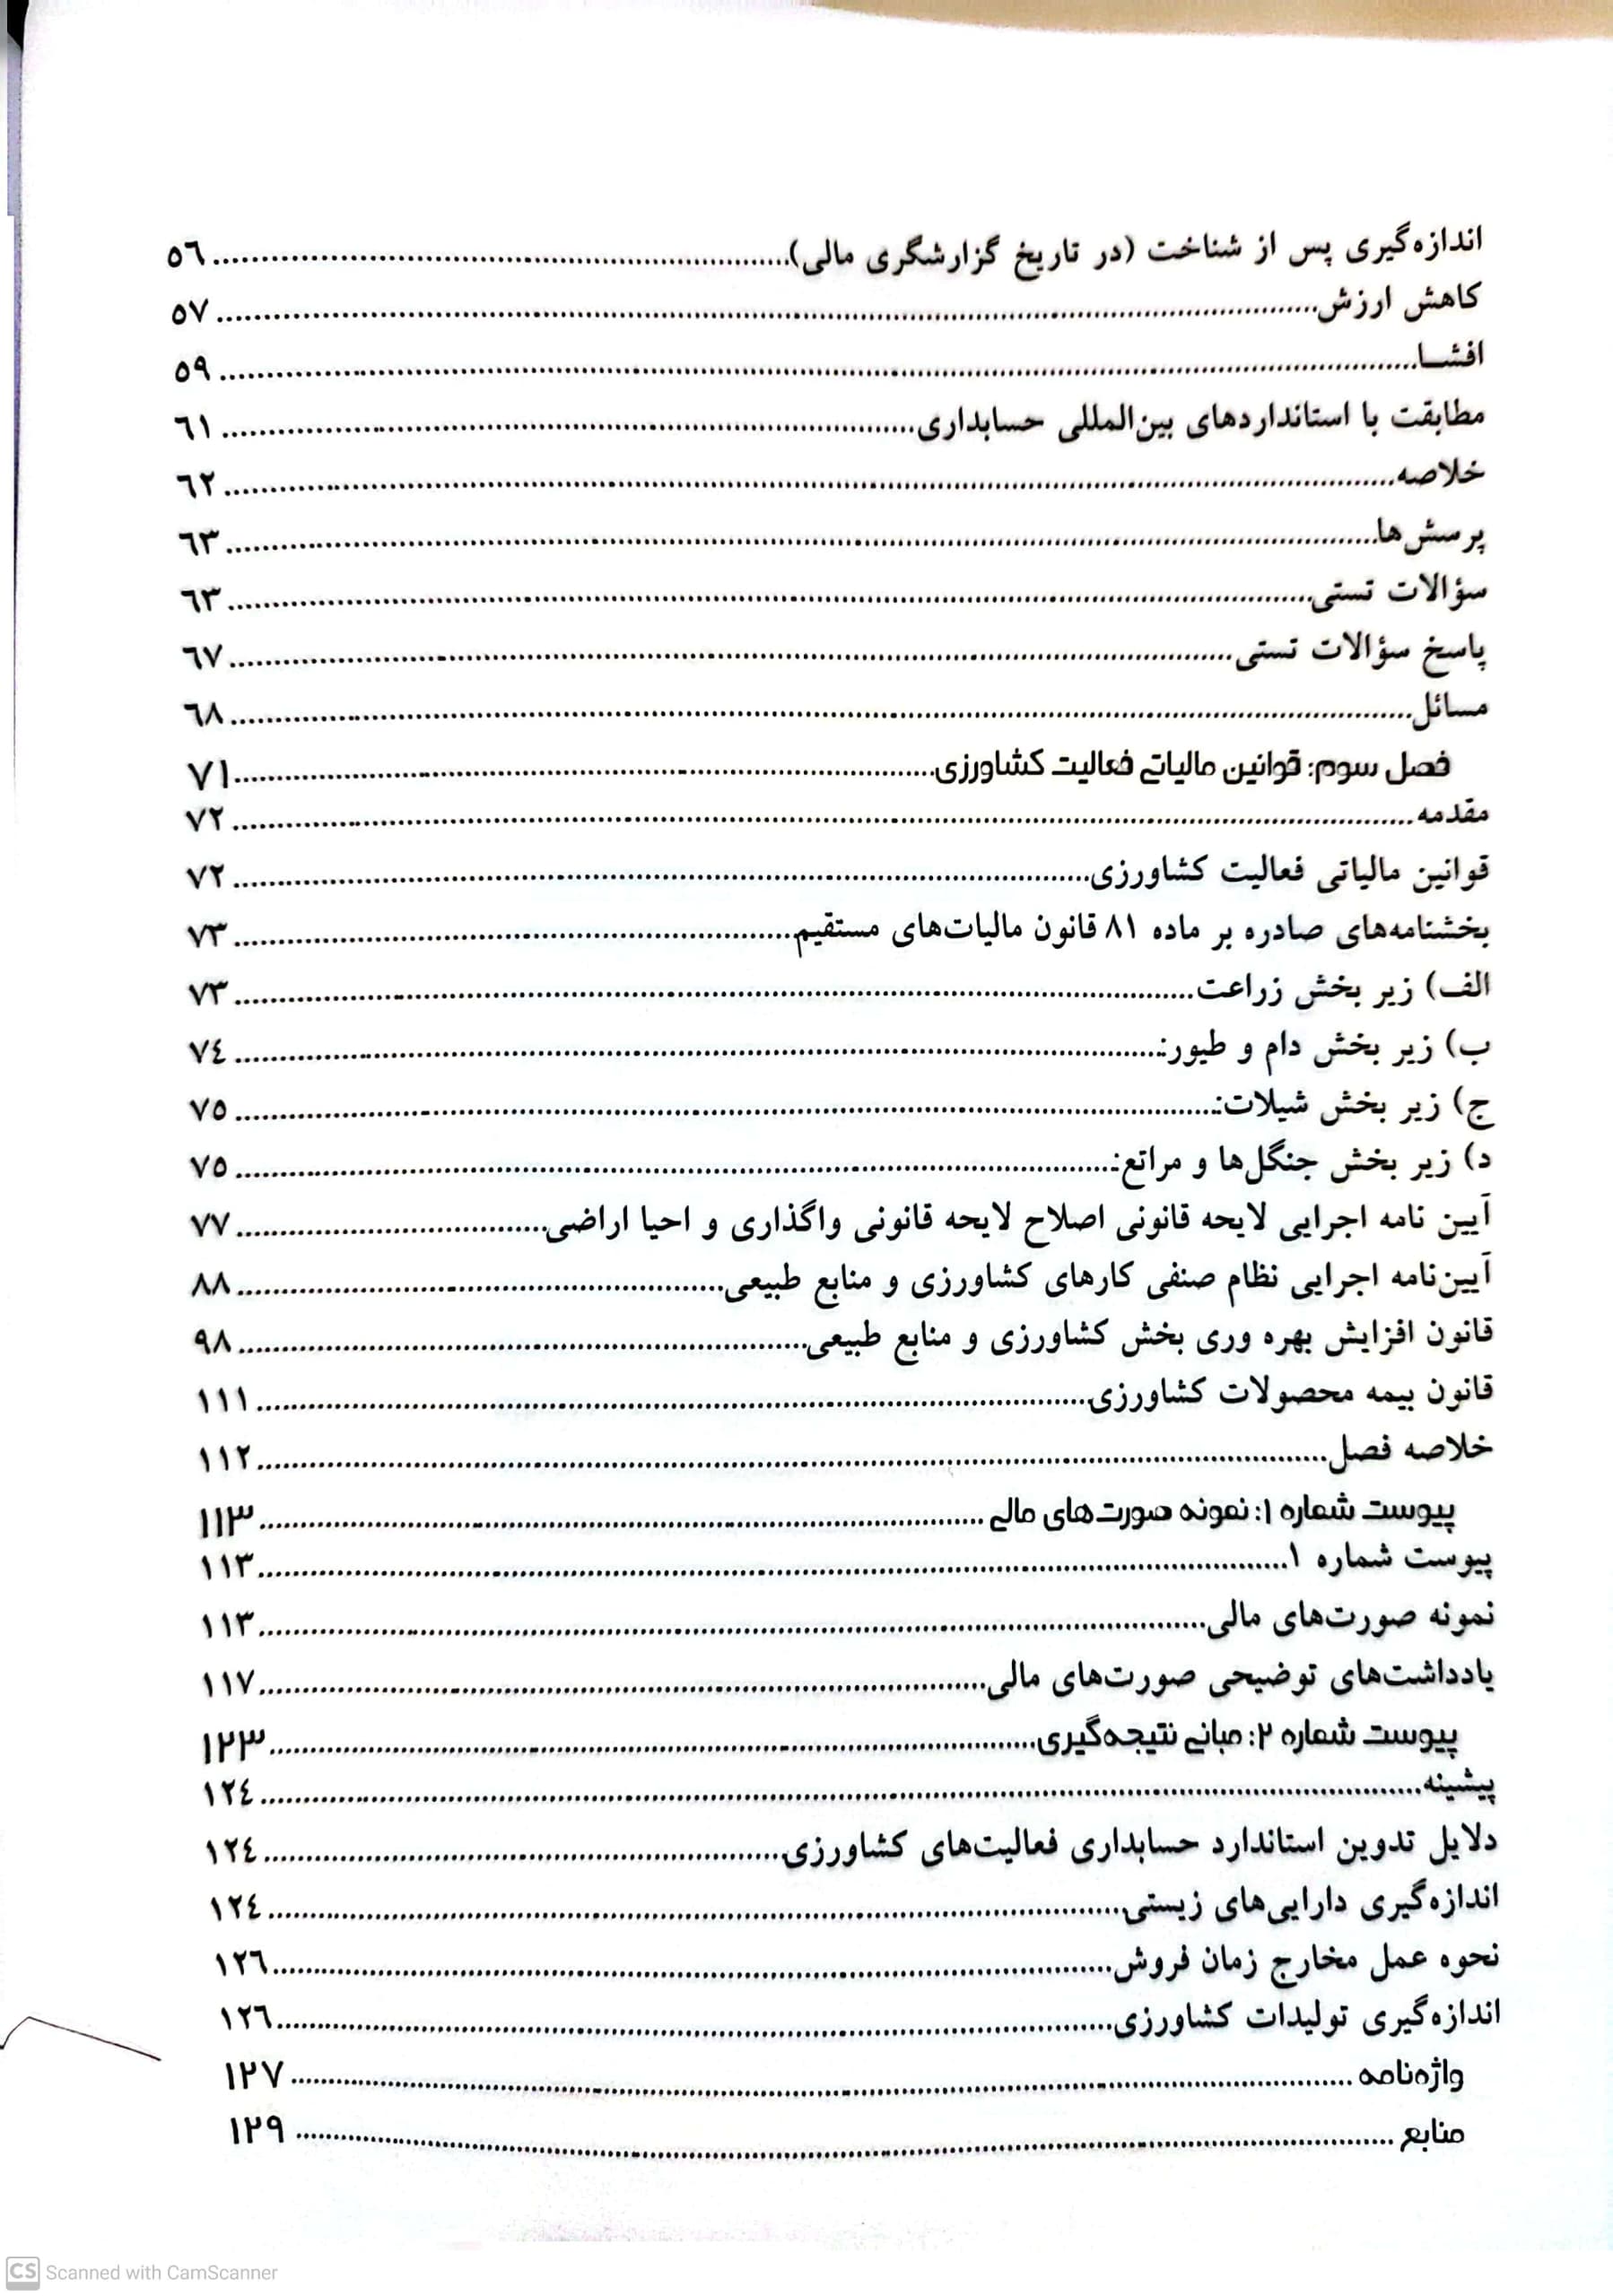 اندازه‌گیری پس از شناخت (در تاریخ گزارشگری مالی)..........۵٦
کاهش ارزش..........۵۷
افشـا..........۵۹
مطابقت با استانداردهای بین‌المللی حسابداری..........٦۱
خلاصه..........٦۲
پرسش‌ها..........٦۳
سؤالات تستی..........٦۳
پاسخ سؤالات تستی..........٦۷
مسائل..........٦۸
فصل سوم: قوانین مالیاتی فعالیت کشاورزی..........۷۱
مقدمه..........۷۲
قوانین مالیاتی فعالیت کشاورزی..........۷۲
بخشنامه‌های صادره بر ماده ۸۱ قانون مالیات‌های مستقیم..........۷۳
الف) زیر بخش زراعت..........۷۳
ب) زیر بخش دام و طیور:..........۷٤
ج) زیر بخش شیلات:..........۷۵
د) زیر بخش جنگل‌ها و مراتع:..........۷۵
آیین نامه اجرایی لایحه قانونی اصلاح لایحه قانونی واگذاری و احیا اراضی..........۷۷
آیین‌نامه اجرایی نظام صنفی کارهای کشاورزی و منابع طبیعی..........۸۸
قانون افزایش بهره وری بخش کشاورزی و منابع طبیعی..........۹۸
قانون بیمه محصولات کشاورزی..........۱۱۱
خلاصه فصل..........۱۱۲
پیوست شماره ۱: نمونه صورت‌های مالی..........۱۱۳
پیوست شماره ۱..........۱۱۳
نمونه صورت‌های مالی..........۱۱۳
یادداشت‌های توضیحی صورت‌های مالی..........۱۱۷
پیوست شماره ۲: مبانی نتیجه‌گیری..........۱۲۳
پیشینه..........۱۲٤
دلایل تدوین استاندارد حسابداری فعالیت‌های کشاورزی..........۱۲٤
اندازه‌گیری دارایی‌های زیستی..........۱۲٤
نحوه عمل مخارج زمان فروش..........۱۲٦
اندازه‌گیری تولیدات کشاورزی..........۱۲٦
واژه‌نامه..........۱۲۷
منابع..........۱۲۹
CS Scanned with CamScanner